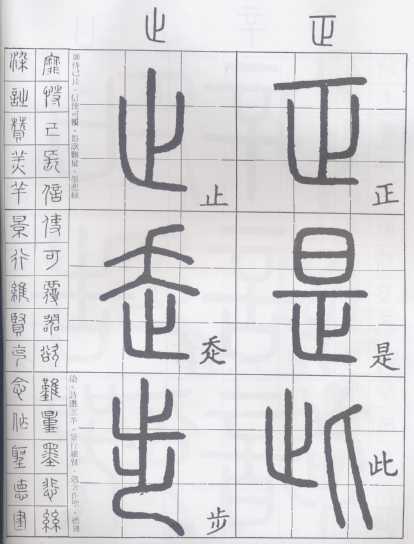 正
正 正
是 是
此 此
止
止 止
走 走
步 步
靡恃己長，信使可覆，器欲難量，墨悲絲
染，詩讚羔羊，景行維賢，克念作聖，德建
靡恃己長信使可覆器欲難量墨悲絲
染詩讚羔羊景行維賢克念作聖德建